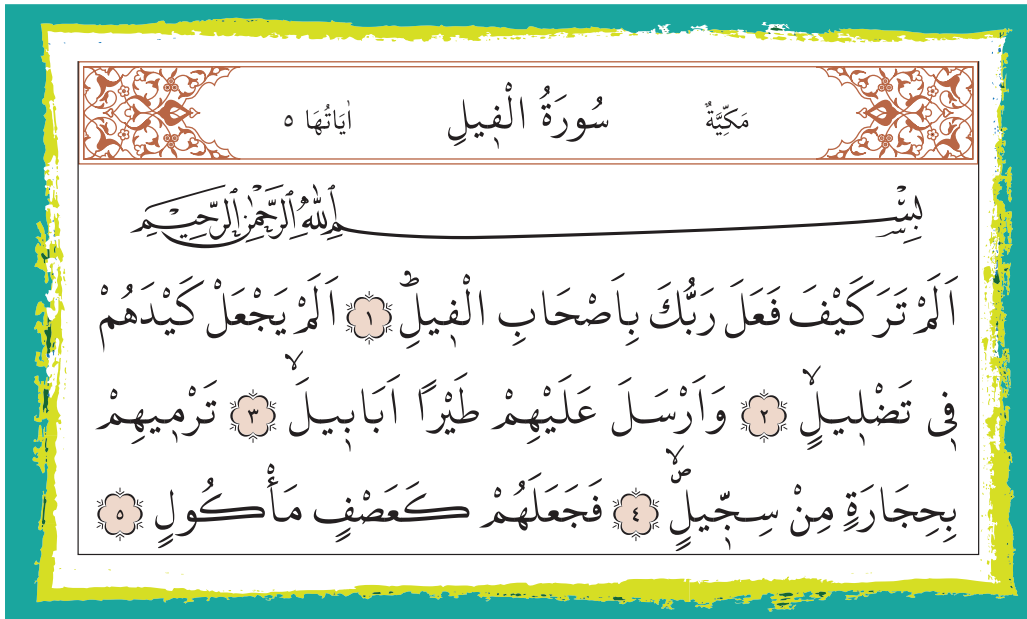 مَكِّيَّةٌ سُورَةُ الْف۪يلِ اٰيَاتُهَا ٥
بِسْمِ اللّٰهِ الرَّحْمٰنِ الرَّح۪يمِ
اَلَمْ تَرَ كَيْفَ فَعَلَ رَبُّكَ بِاَصْحَابِ الْف۪يلِۜ ﴿١﴾ اَلَمْ يَجْعَلْ كَيْدَهُمْ
ف۪ي تَضْل۪يلٍۙ ﴿٢﴾ وَاَرْسَلَ عَلَيْهِمْ طَيْرًا اَبَاب۪يلَۙ ﴿٣﴾ تَرْم۪يهِمْ
بِحِجَارَةٍ مِنْ سِجّ۪يلٍۖۙ ﴿٤﴾ فَجَعَلَهُمْ كَعَصْفٍ مَأْكُولٍ ﴿٥﴾